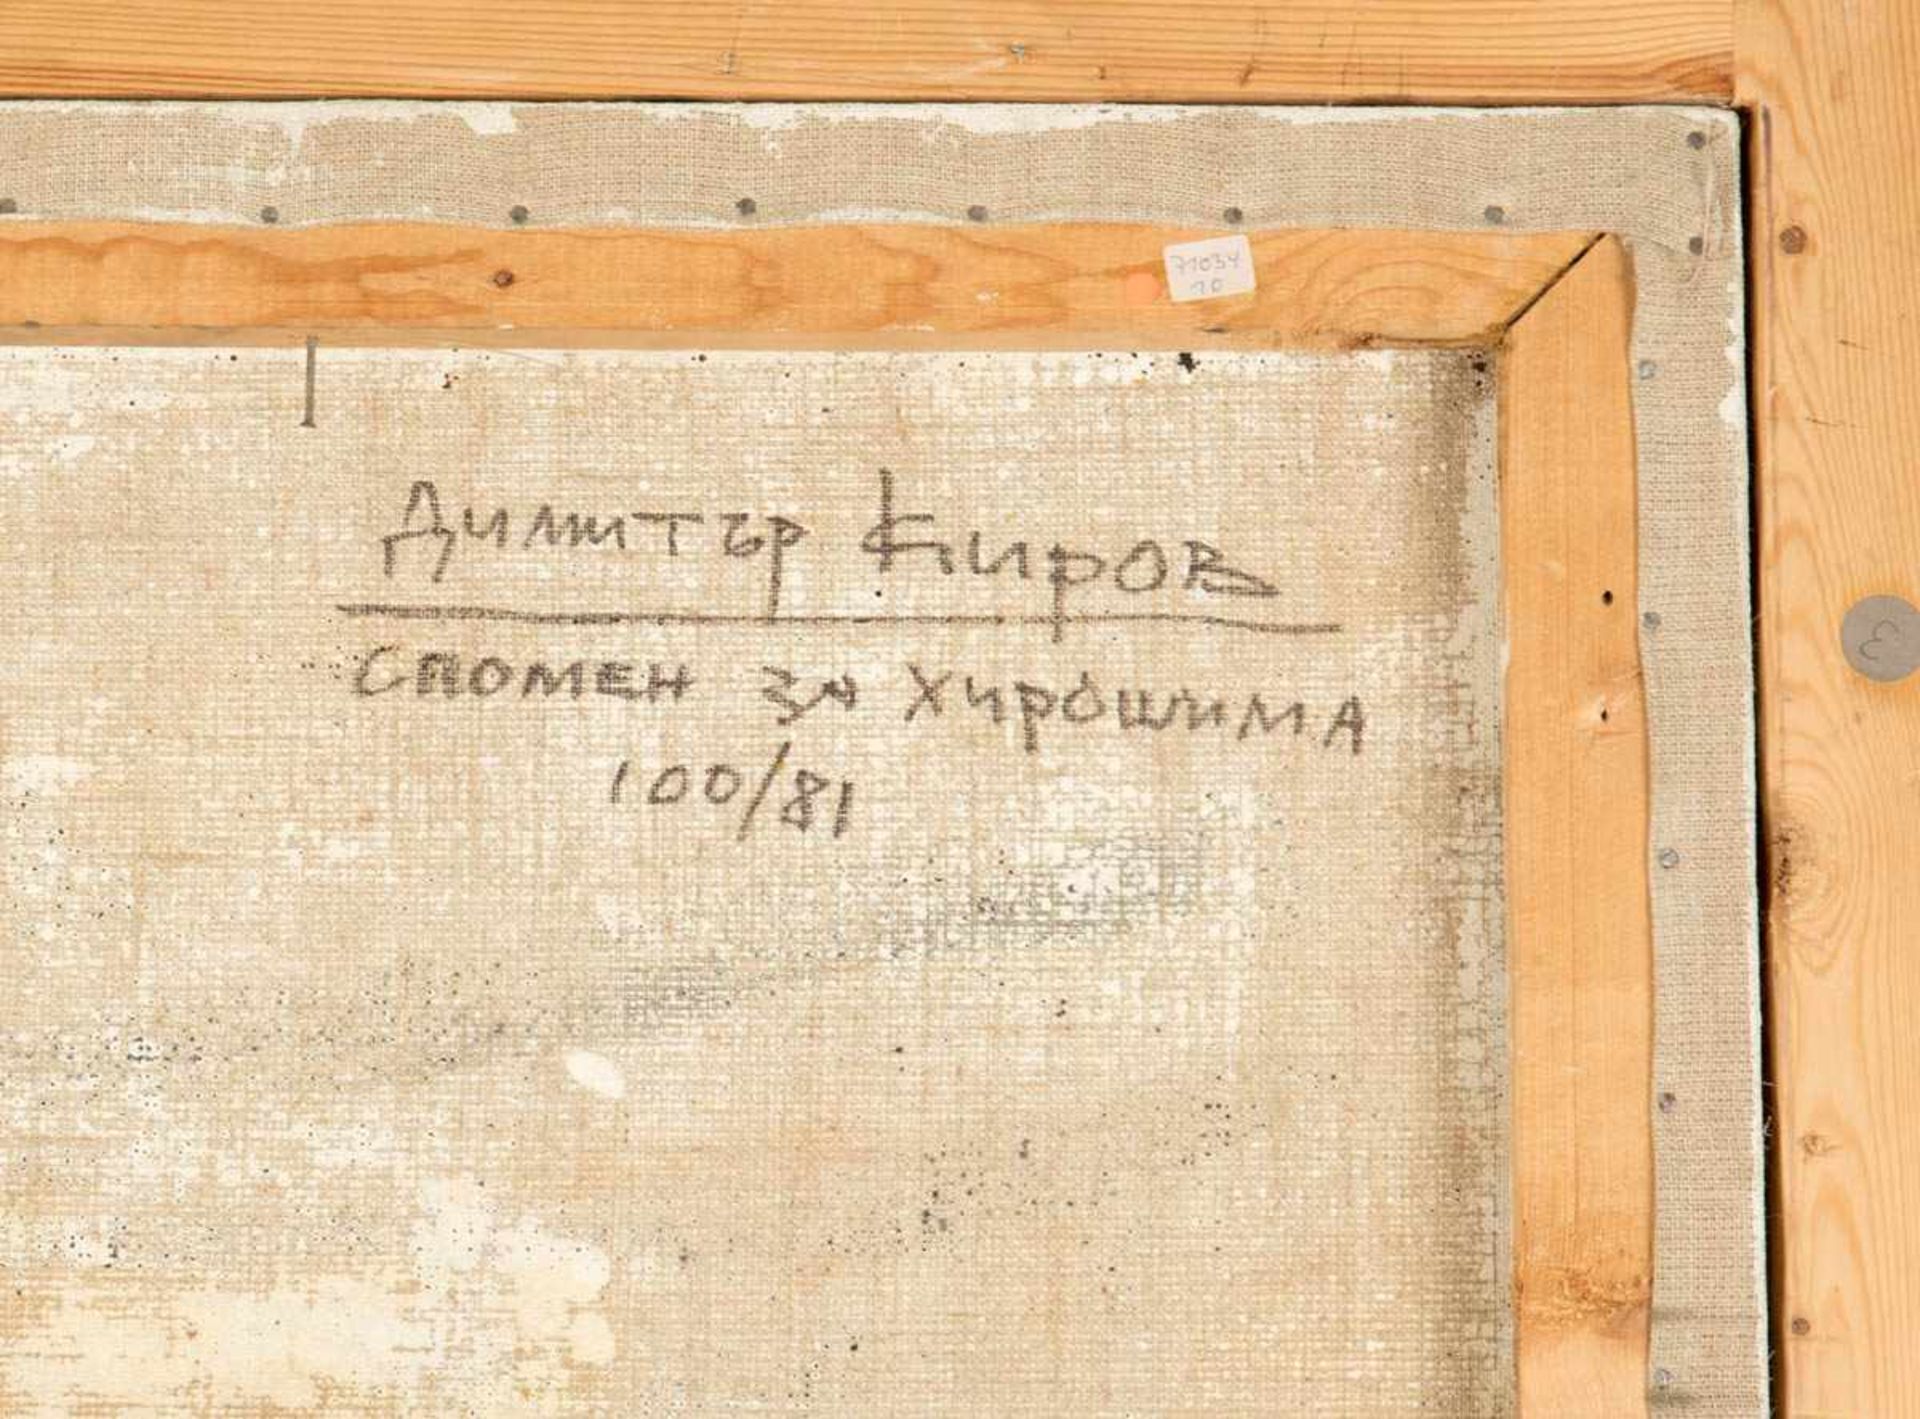 71034
10
Димитър Киров
СПОМЕН ЗА ХИРОШИМА
100/81
3